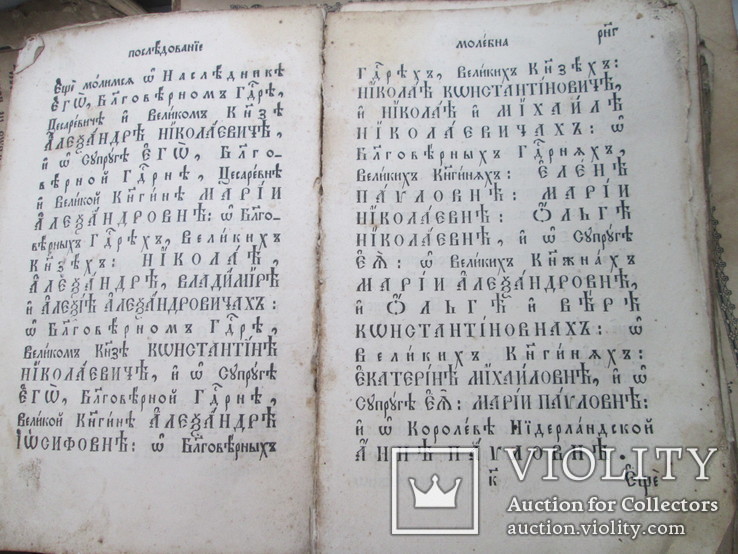 послѣ́дованїе
Е҆щѐ мо́лимсѧ ѡ҆ Наслѣ́дникѣ
Е҆гѡ̀, Бл҃говѣ́рномъ Гдⷭ҇рѣ,
Цесаре́вичѣ и҆ Вели́комъ Кн҃зѣ
А҆леѯа́ндрѣ Нїкола́евичѣ,
и҆ ѡ҆ Сꙋпрꙋ́гѣ Е҆гѡ̀, Бл҃го-
вѣ́рной Гдⷭ҇рнѣ, Цесаре́внѣ
и҆ Вели́кой Кн҃ги́нѣ Марі́и
А҆леѯа́ндровнѣ: ѡ҆ Бл҃го-
вѣ́рныхъ Гдⷭ҇рѣхъ, Вели́кихъ
Кн҃зѣ́хъ: Нїкола́ѣ,
А҆леѯа́ндрѣ, Влади́мїрѣ
и҆ А҆леѯі́ѣ А҆леѯа́ндровичахъ:
ѡ҆ Бл҃говѣ́рномъ Гдⷭ҇рѣ,
Вели́комъ Кн҃зѣ Кѡнстанті́нѣ
Нїкола́евичѣ, и҆ ѡ҆ Сꙋпрꙋ́гѣ
Е҆гѡ̀, Бл҃говѣ́рной Гдⷭ҇рнѣ,
Вели́кой Кн҃ги́нѣ А҆леѯа́ндрѣ
І҆ѡ́сифовнѣ: ѡ҆ Бл҃говѣ́рныхъ
моле́бна
рн҃г
Гдⷭ҇рѣхъ, Вели́кихъ Кн҃зѣ́хъ:
Нїкола́ѣ Кѡнстанті́новичѣ,
и҆ Нїкола́ѣ и҆ Мїхаи́лѣ
Нїкола́евичахъ: ѡ҆
Бл҃говѣ́рныхъ Гдⷭ҇рнѧхъ,
Вели́кихъ Кн҃ги́нѧхъ: Е҆ле́нѣ
Па́ѵловнѣ: Марі́и
Нїкола́евнѣ: Ѻ҆́льгѣ
Нїкола́евнѣ, и҆ ѡ҆ Сꙋпрꙋ́гѣ
Е҆ѧ̀: ѡ҆ Вели́кихъ Кн҃жна́хъ
Марі́и А҆леѯа́ндровнѣ,
и҆ Ѻ҆́льгѣ и҆ Вѣ́рѣ
Кѡнстанті́новнахъ: ѡ҆
Вели́кихъ Кн҃ги́нѧхъ:
Е҆катери́нѣ Мїха́йловнѣ, и҆ ѡ҆
Сꙋпрꙋ́гѣ Е҆ѧ̀: Марі́и Па́ѵловнѣ:
и҆ ѡ҆ Короле́вѣ Нїдерла́ндской
А҆́ннѣ Па́ѵловнѣ.
к҃
Е҆щѐ
VIOLITY
Auction for Collectors
auction.violity.com